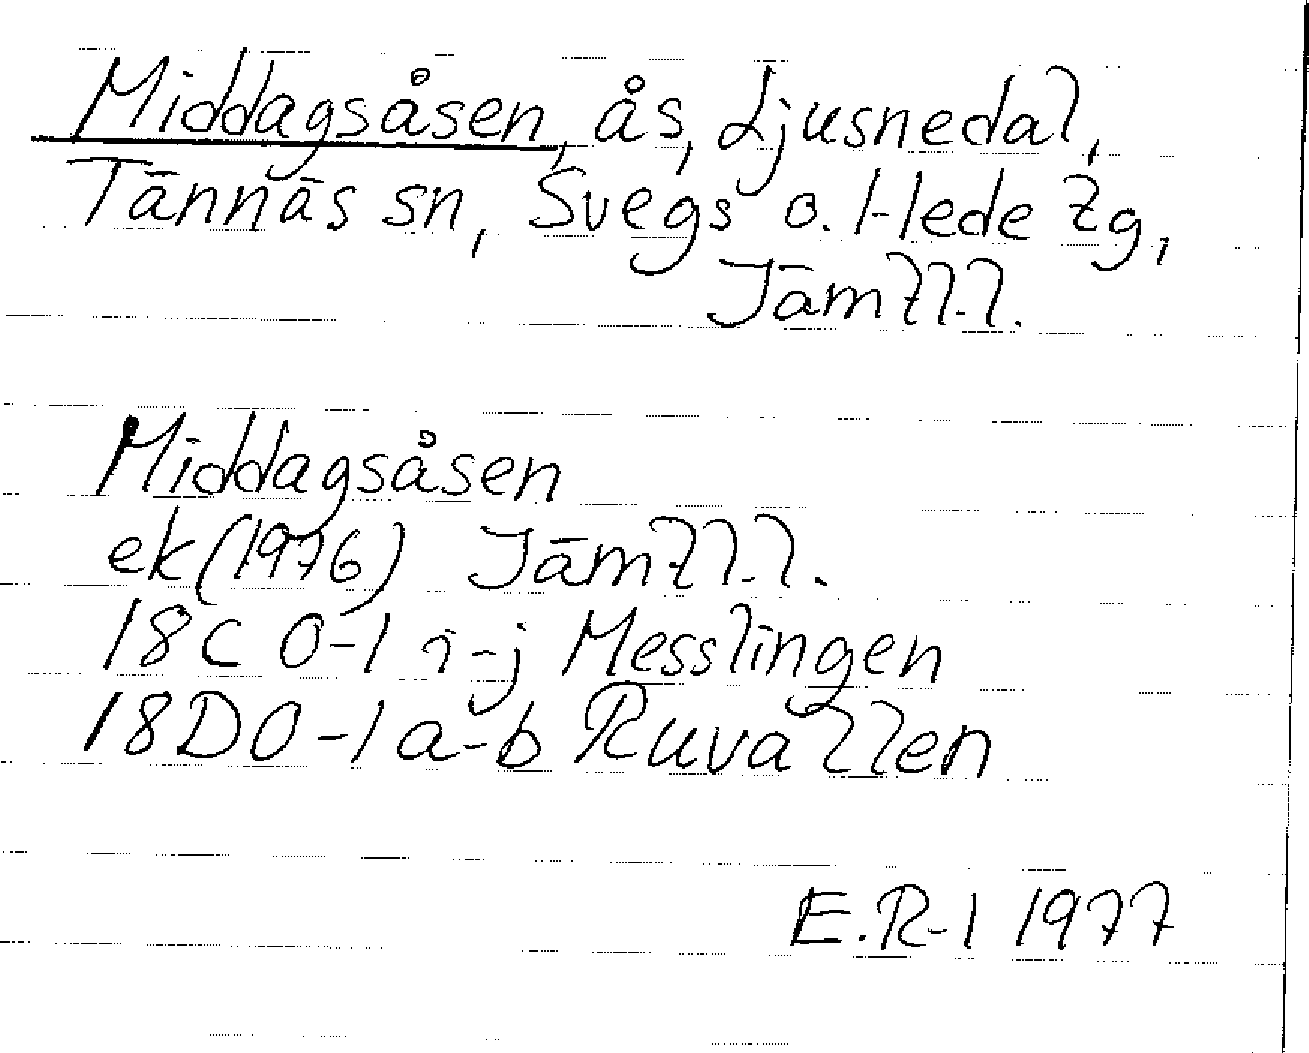 Middagsåsen, ås, Ljusnedal,
Tännäs sn, Svegs o. Hede tg,
Jämtl.l.
Middagsåsen
ek (1976) Jämtl.l.
18C 0-1 i-j Messlingen
18D0-1 a-b Ruvallen
E.R-l 1977